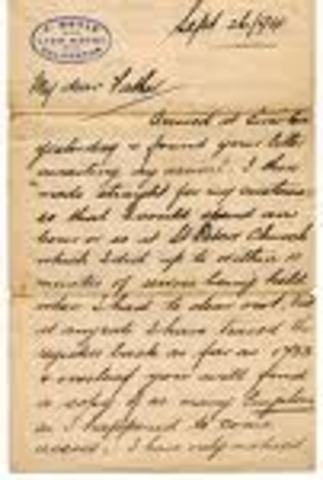 Sept 26/94
My dear Father
Arrived at
yesterday & found your letter
awaiting my arrival. I then
made straight for my
so that I could spend an
hour or so at St Peters Church
which I did up to within 10
minutes of service being held
when I had to clear out, but
at anyrate I have traced the
register back as far as 1733
& overleaf you will find
a copy of as many
as I happened to come
across. I have only noticed